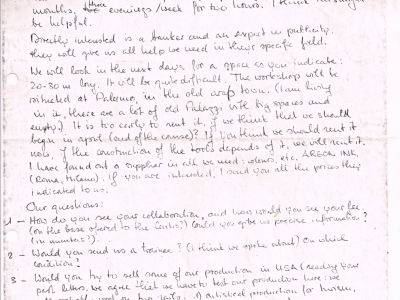 months, three evenings/week for two hours. I think
be helpful.
Directly interested is a banker and an expert in publicity,
they will give us all help we need in their specific field.
We will look in the next days for a space as you indicate:
20-30 m long. It will be quite difficult. The workshop will be
situated at Palermo, in the old arab town. (I am living
in it, there are a lot of old Palazzi with big spaces and
empty.) It is too early to rent it, if we think that we should
begin in april (end of the course)? If you think we should rent it
now, if the construction of the tools depends of it, we will rent it.
I have found out a supplier in all we need: colours, etc, ARGON INK,
(Roma, Milano). If you are interested, I send you all the prices they
indicated to us.
Our questions:
1 - How do you see your collaboration, and how would you see your fee
(on the base offered to the Centro)? Could you give us precise information?
(in numbers?).
2 - Would you send us a trainee? (I think we spoke about) On which
condition?
3 - Would you try to sell some of our production in USA (reading your
past letters, we agree that we have to test our production here: we
artistical production for museum,